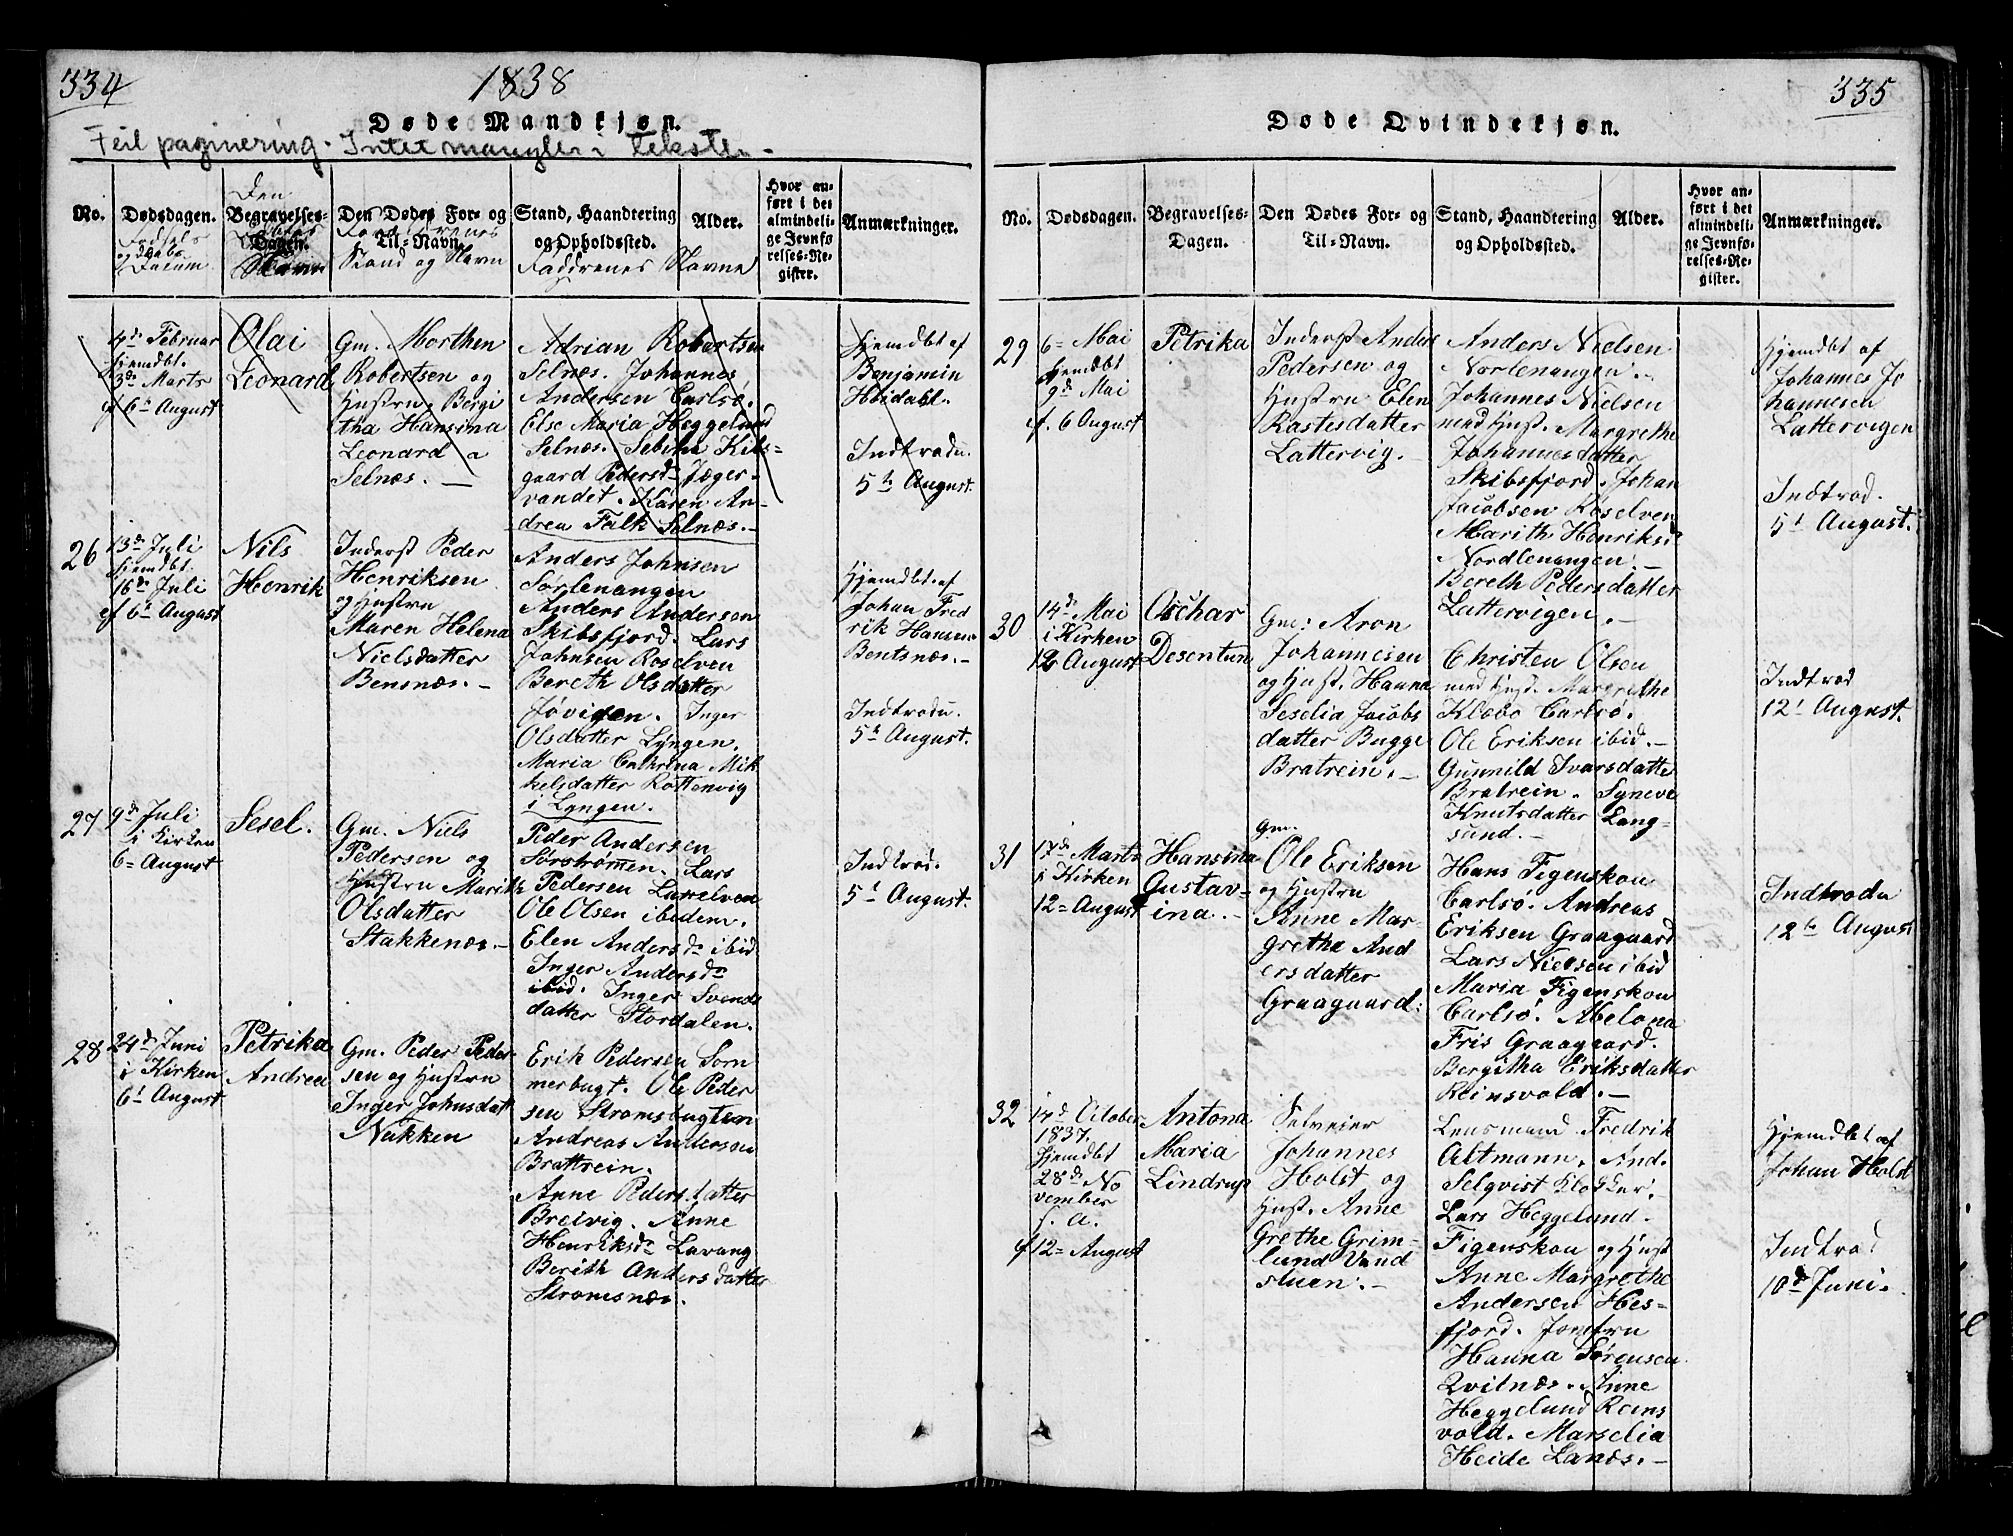 334
1838
Døde Mandkjøn.
Feil paginering. Intet mangler i teksten.
No.
Dødsdagen.
Fødsels
og daabs
Datum
Den
Begravelses-
Dagen.
Navn
Den Dødes For- og
Til-Navn.
Stand og Navn
Stand, Haandtering
og Opholdssted.
Faddrenes Navne
Alder.
Hvor an-
ført i det
almindeli-
ge Jevnfø
relses-Re-
gister.
Anmærkninger.
4de Februar
hjemdbt.
3de Marts
cf 6te August
Olai
Leonard
Gm. Morthen
Robertsen og
Hustru Bergi
tha Hansina
Leonard a
Selnæs. —
Adrian Robertsen
Selnæs. Johannes
Andersen Carlsø.
Else Maria Heggelund
Selnæs. Sebika Kils-
gaard Pedersd. Jæger-
vandet. Karen An-
drea Falk Selnæs. —
Hjemdbt af
Benjamin
Heidahl.
Indtrodu.
5te August.
26
13de Juli
hjemdbt.
16de Juli
cf 6te August
Nils
Henrik
Inderst Peder
Henriksen
og Hustru
Maren Helena
Nielsdatter
Bensnæs. —
Anders Johnsen
Sørlenangen
Anders Andersen
Skibsfjord. Lars
Johnsen Roselven
Bereth Olsdatter
Jøvigen. Inger
Olsdatter Lyngen.
Maria Cathrina Mik
kelsdatter Rottenvig
i Lyngen.
Hjemdbt. af
Johan Fred
rik Hansen
Bentsnæs. —
Indtrodu.
5te August.
27
9de Juli
i Kirken
6= August
Sesel.
Gm. Niels
Pedersen og
Hustru Marith
Olsdatter
Stakkenæs. —
Peder Andersen
Sørstrømmen. Lars
Pedersen Lanselven
Ole Olsen ibidem.
Elen Andersd. ibid
Inger Andersd.
ibid. Inger Svends
datter Stordalen.
Indtrod.
5t August.
28
24de Juni
i Kirken
6t August
Petrika
Andrea
Gm. Peder Peder
sen og Hustru
Inger Johnsdatt
Nakken
Erik Pedersen Som
merbugt. Ole Peder
sen Stromsbugten
Andreas Andersen
Brattrein.
Anne Pedersdatter
Breivig. Anne
Henriksd. Lavang
Berith Andersdatter
Stromsnæs.
335
Døde Qvindekjøn.
No.
Dødsdagen.
Begravelses-
Dagen.
Den Dødes For- og
Til-Navn.
Stand, Haandtering
og Opholdssted.
Alder.
Hvor an-
ført i det
almindeli-
ge Jevnfø-
relses-Re-
gister.
Anmærkninger.
29
6= Mai
hjemdbt
9de Mai
cf. 6 August
Petrika
Inderst Anders
Pedersen og
Hustru Elen
Rastesdatter
Lattervig. —
Anders Nielsen
Norlenangen. —
Johannes Nielsen
med Hust. Margrethe
Johannesdatter
Skibsfjord. Johan
Jacobsen Roselven
Marith Henriksd
Nordlenangen. —
Bereth Pedersdatter
Lattervigen. —
Hjemdbt af
Johannes Jo
hannesen
Lattervigen
Indtrod.
5t August.
30
14de Mai
i Kirken
12 August
Oschar
Desentun
Gm: Aron
Johannesen
og Hust. Hanna
Seselia Jacobs
datter Bugge
Bratrein. —
Christen Olsen
med Hust. Margrethe
Klæbo Carlsø.
Ole Eriksen ibid. —
Gunnild Ivarsdatte
Bratrein. Syneve
Knutsdatter Lang-
sund. —
Indtrod
12t August.
31
17de Marts
i Kirken
12= August
Hansina
Gustav-
ina. —
Gm.
Ole Eriksen
og Hustru
Anne Mar-
grethe And
ersdatter
Graagaard.
Hans Figenskou
Carlsø. Andreas
Eriksen Graagaard
Lars Nielsen ibid
Maria Figenskou
Carlsø. Abelona
Fris Graagaard.
Bergitha Eriksdatter
Reinsvold. —
Indtrodu
12te August
32
14de October
1837.
hjemdbt
28de No
vember
s. a.
cf 12= August
Antona
Maria
Lindrup
Selveier
Johannes
Holst og
Hust. Anne
Grethe Grim-
lund Vand
stuen. —
Lensmand Fredrik
Altmann. And.
Selqvist Klokker.
Lars Heggelund.
Figenskou og Hust
Anne Margrethe
Andersen Hes-
fjord. Jomfru
Hanna Sørensen
Qvitnæs. Anne
Heggelund Reins
vold. Marselia
Heide Lanæs. —
Hjemdbt af
Johan Holst
Indtrod
10de Juni.